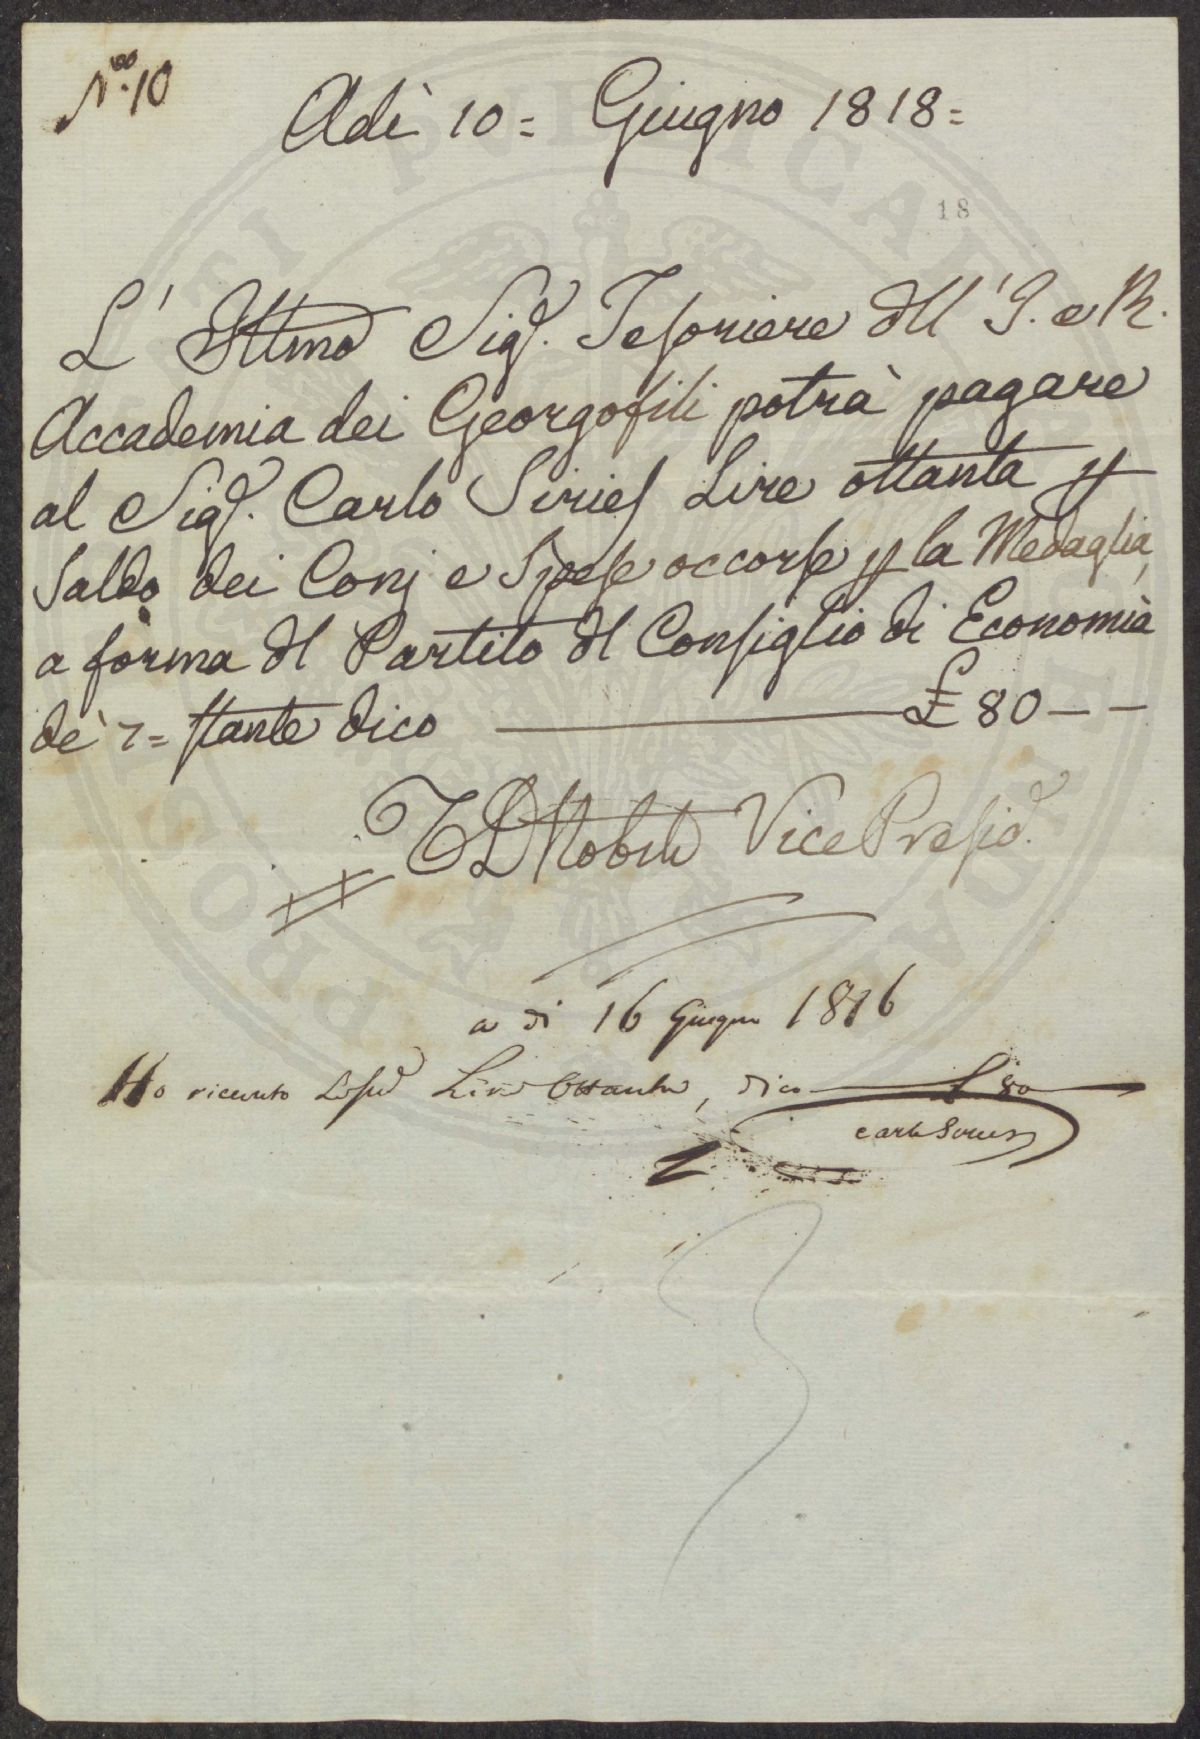 N.º 10
Adì 10= Giugno 1818=
18
L' Illmo Sig.r Tesoriere dell' I. e R.
Accademia dei Georgofili potrà pagare
al Sig.r Carlo Siries Lire ottanta p
Saldo dei Conj e Spese occorse p la Medaglia,
a forma del Partito del Consiglio di Economia
de' 7= stante dico £ 80 - -
Nobili Vice Presid.
a di 16 Giugno 1816
Ho ricevuto Lire Ottanta, dico £ 80
Carlo Siries
PROSPERITATI PUBLICAE AUGENDAE